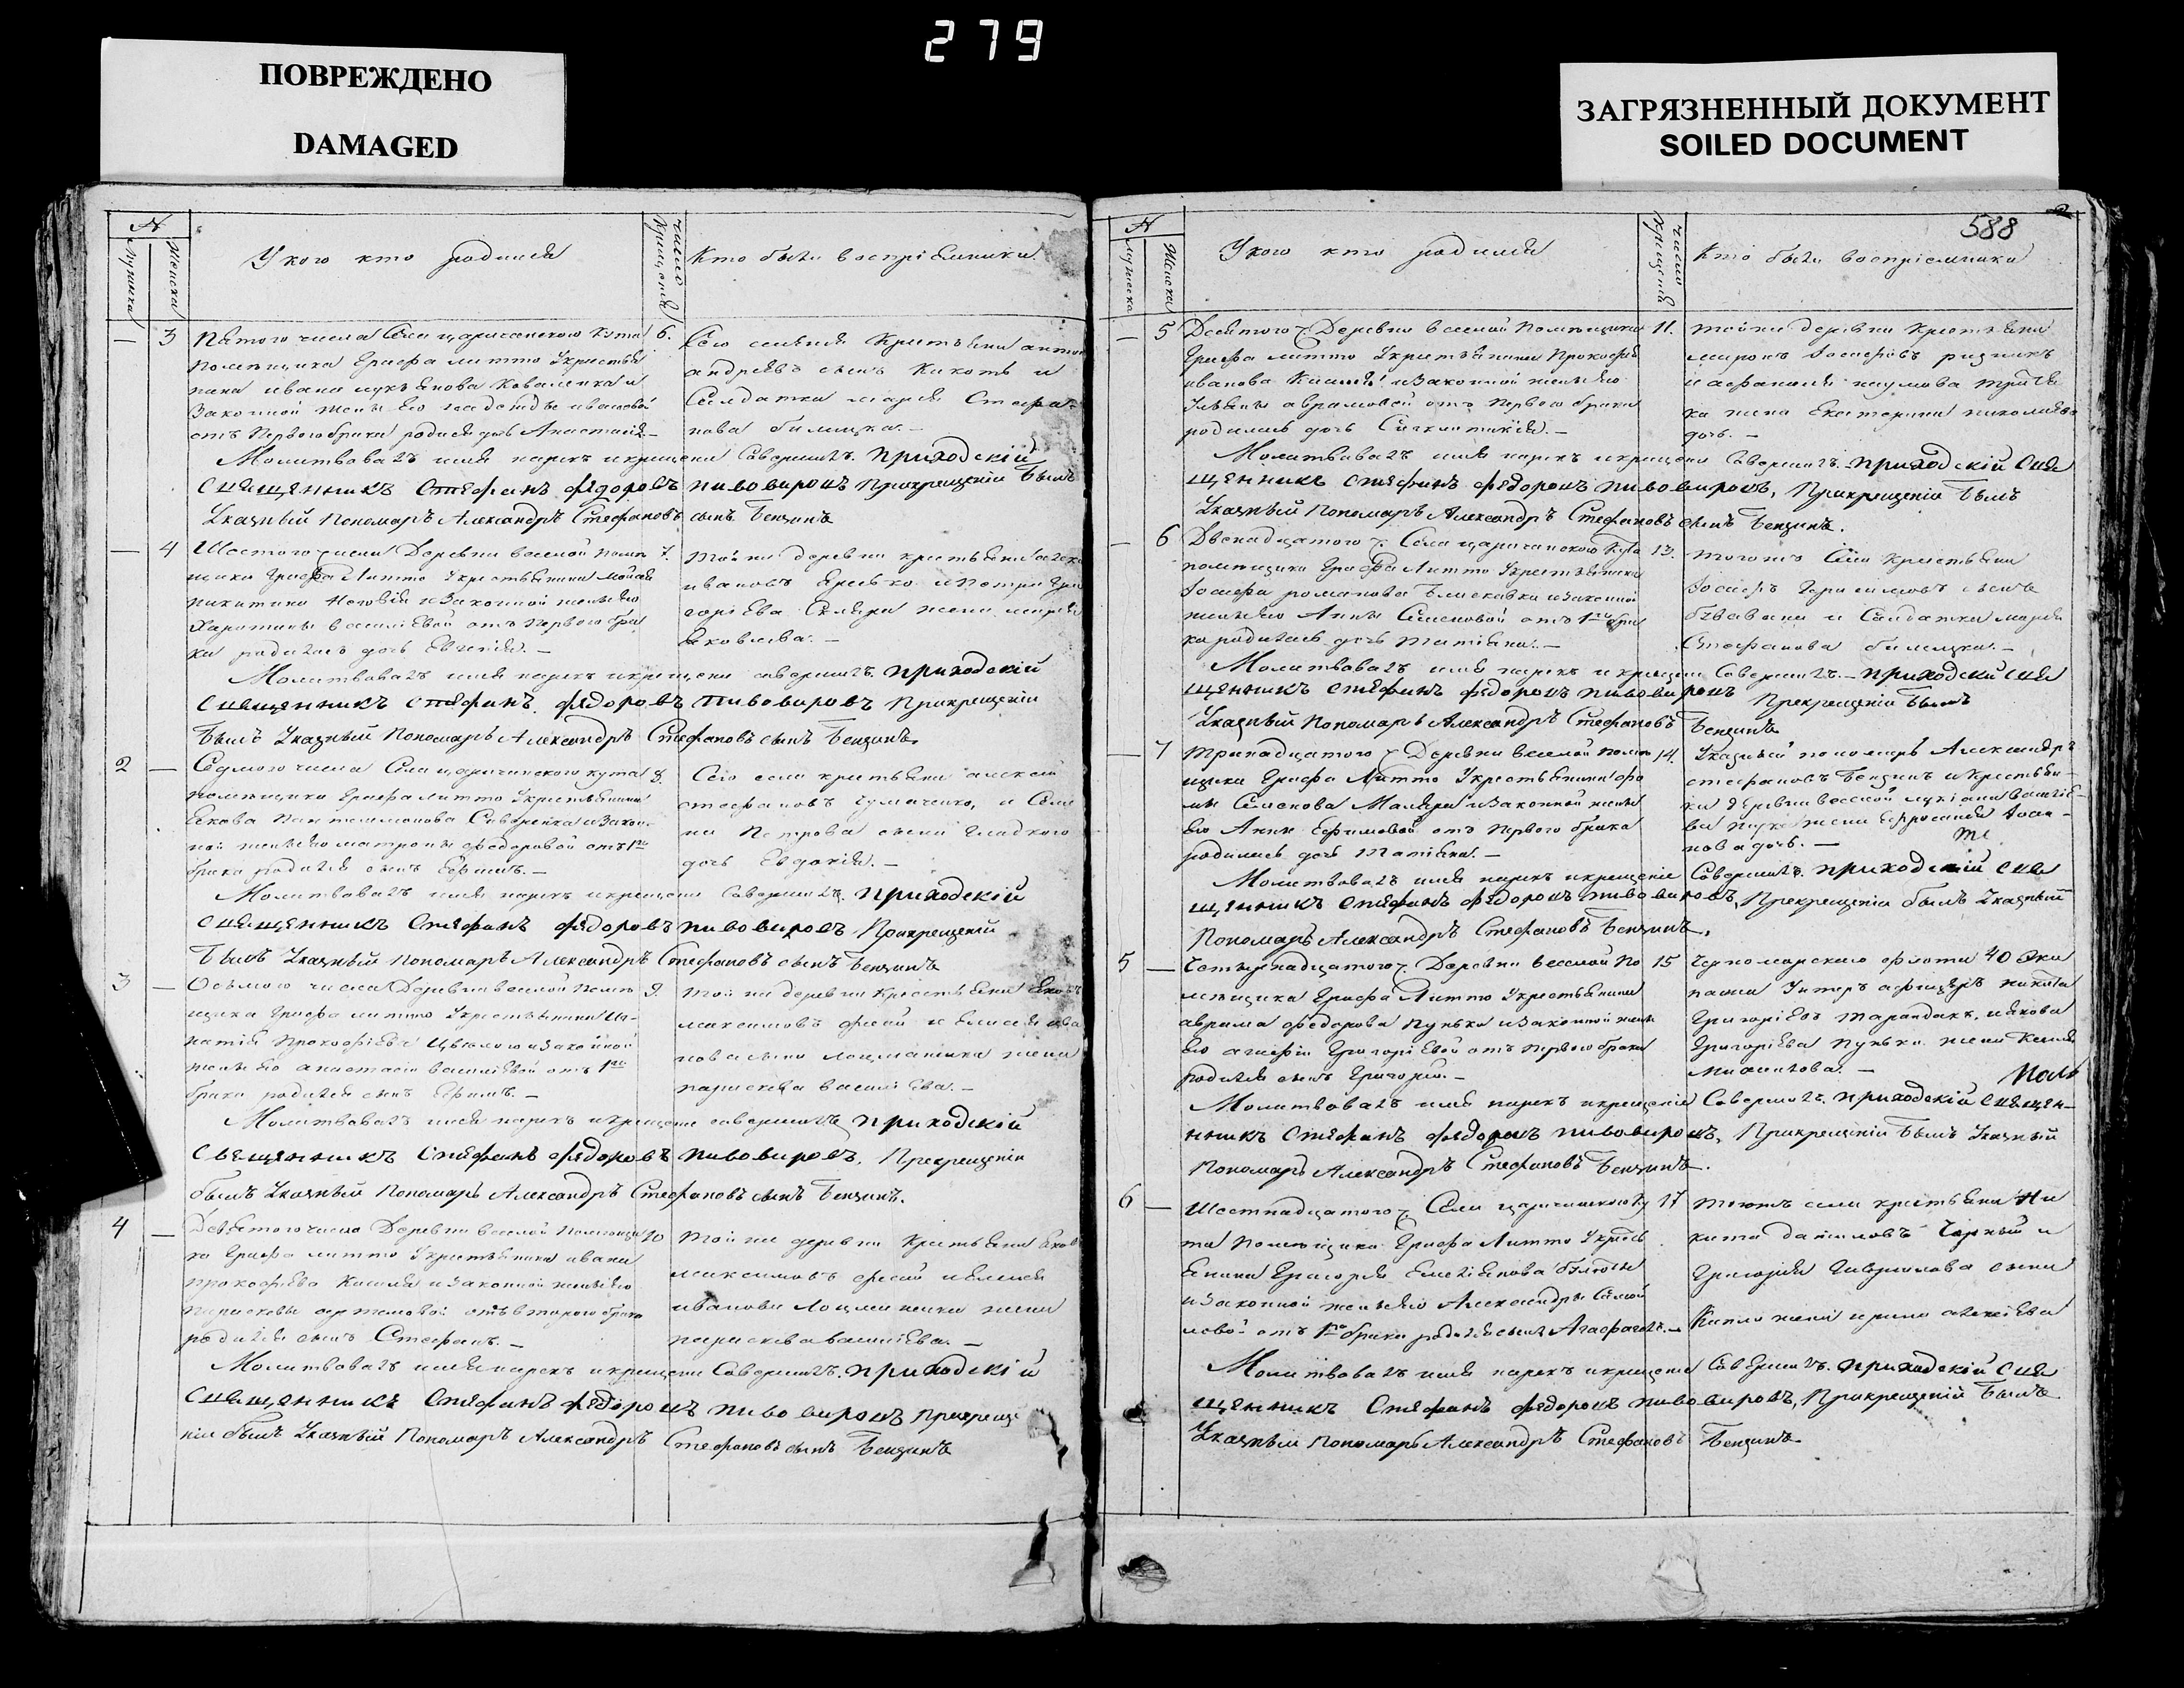 279
ПОВРЕЖДЕНО
DAMAGED
ЗАГРЯЗНЕННЫЙ ДОКУМЕНТ
SOILED DOCUMENT
№
Мужеска
Женска
У кого кто родился
число крещенія
Кто были воспріемники
— 3 Пятого числа Села царичанского Кута 6.
помещика Графа литто Укрестья
нина ивана лукъянова Коваленка и
Законной жены его надежды ивановой
отъ Первого брака родися дочь Анастасія —
Сего селенія Крестьянин антон
андреевъ сынъ Кикоть и
Солдатка марія Стефа-
нова билицка. —
Молитвовалъ имя нарекъ и крещение Совершилъ. приходскій
священникъ Стефанъ федоровъ пивоваровъ При крещеніи былъ
Указный Пономарь Александръ Стефановъ сынъ Бенцинъ
— 4 Шестого числа Деревни веселой поме 7.
щика Графа Литто Укрестьянина
никитина и Законной жены его
Харитины василіевой отъ Первого бра
ка родилась дочь Евгенія. —
Той же деревни крестьянин
ивановъ и Петра Гри
горіева Скляра жена марія
яковлева. —
Молитвовалъ имя нарекъ и крещение совершилъ приходскій
священникъ стефанъ федоровъ пивоваровъ При крещеніи
былъ Указный Пономарь Александръ Стефановъ сынъ Бенцинъ
2 — Седмого числа Села царичанского кута 8.
помещика Графа литто Укрестьянина
Якова Пантелимонова и Закон-
ной жены его матроны федоровой отъ 1го
брака родился сынъ Ефимъ. —
Сего села крестьянин алексей
стефановъ Чумаченко, и Семе
на Петрова сына гладкого
дочь Евдокія. —
Молитвовалъ имя нарекъ и крещение Совершилъ. приходскій
священникъ Стефанъ федоровъ пивоваровъ При крещеніи
былъ Указный Пономарь Александръ Стефановъ сынъ Бенцинъ
3 — Осьмого числа Деревни веселой Поме 9.
щика Графа литто Укрестьянина Иг-
натія Прокофіева и Законной
жены его анастасіи василіевой отъ 1го
брака родился сынъ Ефимъ. —
Той же деревни Крестьянин Яковъ
максимовъ и елисея ива
нова сына лоцманенка жена
параскева василіева. —
Молитвовалъ имя нарекъ и крещение совершилъ приходскій
священникъ Стефанъ федоровъ пивоваровъ. При крещеніи
былъ Указный Пономарь Александръ Стефановъ сынъ Бенцинъ.
4 — Девятого числа Деревни веселой Помещи 10
ка Графа литто Укрестьянина ивана
прокофіева Кисиля и Законной жены его
параскевы артемовой отъ второго брака
родился сынъ Стефанъ. —
Той же деревни Крестьянин Яков
максимовъ и елисея
иванова Лоцманенка жена
параскева василіева. —
Молитвовалъ имя нарекъ и крещение Совершилъ. приходскій
священникъ Стефанъ федоровъ пивоваровъ При креще
ніи былъ Указный Пономарь Александръ Стефановъ сынъ Бенцинъ
588
№
Мужеска
Женска
У кого кто родился
число крещенія
Кто были воспріемники
— 5 Десятого ч. Деревни веселой Помещика 11.
Графа литто Укрестьянина Прокофія
иванова Кисиля и Законной жены его
Ульяны аврамовой отъ Первого брака
родилась дочь Синклитикія. —
Той же деревни Крестьянин
миронъ іосифовъ резникъ
и афанасія наумова
жена Екатерина николаева
дочь. —
Молитвовалъ имя нарекъ и крещение Совершилъ. приходскій свя
щенникъ стефанъ федоровъ пивоваровъ, При крещеніи былъ
Указный Пономарь Александръ Стефановъ сынъ Бенцинъ.
— 6 Двенадцатого ч. Села царичанского Кута 13.
помещика Графа Литто Укрестьянина
іосифа романова и законной
жены его Анны Семеновой отъ 1го бра
ка родилась дочь Татіана. —
Того же Села Крестьянин
іосифъ Герасимовъ сынъ
и Солдатка марія
Стефанова билицка. —
Молитвовалъ имя нарекъ и крещение Совершилъ. — приходскій свя
щенникъ стефанъ федоровъ пивоваровъ При крещеніи былъ
Указный Пономарь Александръ Стефановъ Бенцинъ
— 7 Тринадцатого ч. Деревни веселой поме 14.
щика Графа Литто Укрестьянина фо
мы Семенова Маляра и Законной жены
его Анны Ефимовой отъ Первого брака
родилась дочь Татіана. —
Указный пономарь Александръ
стефановъ Бенцинъ и Крестьян-
ки деревни веселой лукіана василіе-
ва жена Ефросинія
нова дочь. —
Молитвовалъ имя нарекъ и крещеніе Совершилъ. приходскій свя
щенникъ стефанъ федоровъ пивоваровъ, При крещеніи былъ Указный
Пономарь Александръ Стефановъ Бенцинъ.
5 — Четырнадцатого ч. Деревни веселой По 15
мещика Графа Литто Укрестьянина
аврама федорова Пунька и законной жены
его агафіи Григоріевой отъ Первого брака
родился сынъ Григорій. —
Черноморского флота 40 эки
пажа Унтеръ афицеръ никита
Григоріевъ и якова
Григоріева Пунька жена Ксенія
Молитвовалъ имя нарекъ и крещеніе Совершилъ. приходскій священ-
никъ стефанъ федоровъ пивоваровъ, При крещеніи былъ Указный
Пономарь Александръ Стефановъ Бенцинъ.
6 — Шестнадцатого ч. Села царичанского Ку 17
та Помещика Графа Литто Укресть
янина Григорія Емеліянова
и Законной жены его Александры Самой
ловой отъ 1го брака родился сынъ Агафангелъ. —
Того же села крестьянин Ни
кита даниловъ Чорный и
Григорія Гаврилова сына
жена ирина алексіева
Молитвовалъ имя нарекъ и крещение Совершилъ. приходскій свя
щенникъ Стефанъ федоровъ пивоваровъ, При крещеніи былъ
Указный Пономарь Александръ Стефановъ Бенцинъ